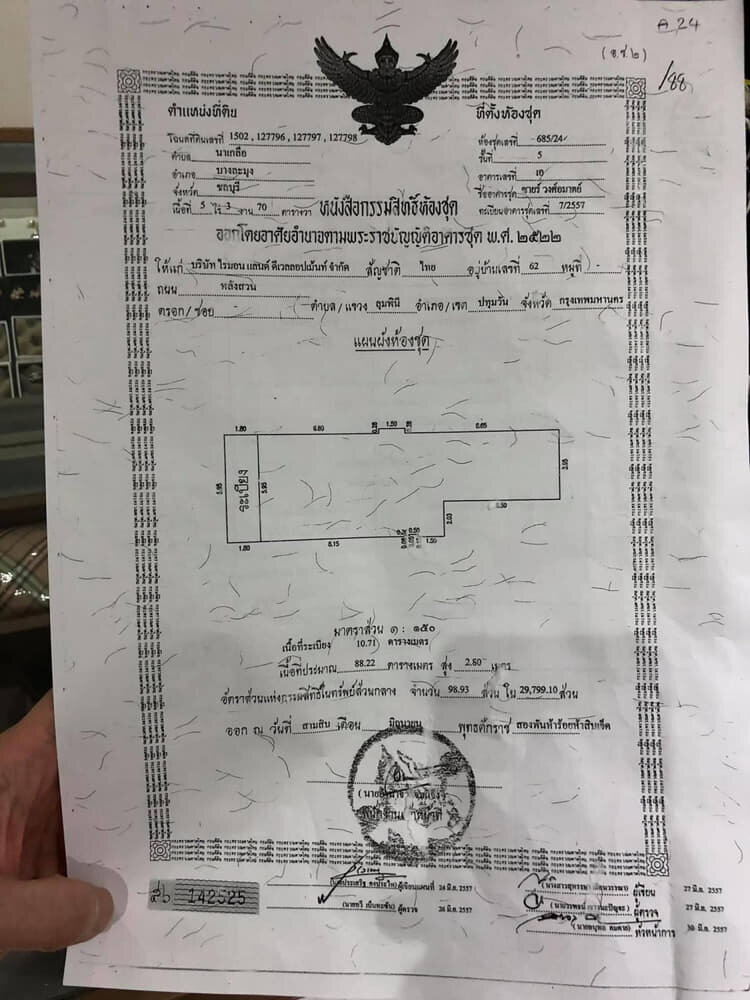 A 24
(อ.ช.๒)
/88
ตำแหน่งที่ดิน
ที่ตั้งห้องชุด
โฉนดที่ดินเลขที่ 1502 , 127796 , 127797 , 127798
ห้องชุดเลขที่ 685/24
ตำบล นาเกลือ
ชั้นที่ 5
อำเภอ บางละมุง
อาคารเลขที่ 10
จังหวัด ชลบุรี
ชื่ออาคารชุด ซายร์ วงศ์อมาตย์
เนื้อที่ 5 ไร่ 3 งาน 70 ตารางวา
หนังสือกรรมสิทธิ์ห้องชุด
ทะเบียนอาคารชุดเลขที่ 7/2557
ออกโดยอาศัยอำนาจตามพระราชบัญญัติอาคารชุด พ.ศ. ๒๕๒๒
ให้แก่ บริษัท ไรมอน แลนด์ ดีเวลลอปเม้นท์ จำกัด สัญชาติ ไทย อยู่บ้านเลขที่ 62 หมู่ที่ -
ถนน หลังสวน
ตรอก/ซอย - ตำบล/แขวง ลุมพินี อำเภอ/เขต ปทุมวัน จังหวัด กรุงเทพมหานคร
แผนผังห้องชุด
1.80 6.80 0.25 1.50 0.25 6.65
5.95 ระเบียง 5.95 3.95
6.50
2.03
1.80 8.15 0.50 1.50
มาตราส่วน ๑ : ๑๕๐
เนื้อที่ระเบียง 10.71 ตารางเมตร
เนื้อที่ประมาณ 88.22 ตารางเมตร สูง 2.80 เมตร
อัตราส่วนแห่งกรรมสิทธิ์ในทรัพย์ส่วนกลาง จำนวน 98.93 ส่วน ใน 29,799.10 ส่วน
ออก ณ วันที่ สามสิบ เดือน มิถุนายน พุทธศักราช สองพันห้าร้อยห้าสิบเจ็ด
ผู้เขียนแผนที่ 24 มิ.ย. 2557
ผู้เขียน 27 มิ.ย. 2557
ผู้ตรวจ 26 มิ.ย. 2557
ผู้ตรวจ 27 มิ.ย. 2557
หัวหน้าการ 30 มิ.ย. 2557
๕๖ 142525